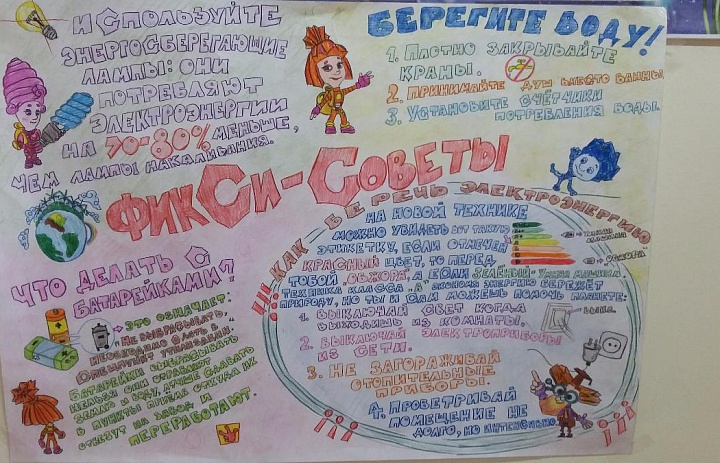 ИСПОЛЬЗУЙТЕ
ЭНЕРГОСБЕРЕГАЮЩИЕ
ЛАМПЫ: ОНИ
ПОТРЕБЛЯЮТ
ЭЛЕКТРОЭНЕРГИИ
НА 70-80% МЕНЬШЕ,
ЧЕМ ЛАМПЫ НАКАЛИВАНИЯ.
БЕРЕГИТЕ ВОДУ!
1. ПЛОТНО ЗАКРЫВАЙТЕ
КРАНЫ.
2. ПРИНИМАЙТЕ ДУШ ВМЕСТО ВАННЫ
3. УСТАНОВИТЕ СЧЁТЧИКИ
ПОТРЕБЛЕНИЯ ВОДЫ.
ФИКСИ-СОВЕТЫ
ЧТО ДЕЛАТЬ С
БАТАРЕЙКАМИ?
ЭТО ОЗНАЧАЕТ:
НЕ ВЫБРАСЫВАТЬ,
НЕОБХОДИМО СДАТЬ В
СПЕЦПУНКТ УТИЛИЗАЦИИ
БАТАРЕЙКИ ВЫБРАСЫВАТЬ
НЕЛЬЗЯ ОНИ ОТРАВЛЯЮТ
ЗЕМЛЮ И ВОДУ, ЛУЧШЕ СДАВАТЬ
В ПУНКТЫ ПРИЕМА ОТКУДА ИХ
ОТВЕЗУТ НА ЗАВОД И
ПЕРЕРАБОТАЮТ.
КАК БЕРЕЧЬ ЭЛЕКТРОЭНЕРГИЮ
НА НОВОЙ ТЕХНИКЕ
МОЖНО УВИДЕТЬ ВОТ ТАКУЮ
ЭТИКЕТКУ, ЕСЛИ ОТМЕЧАН
КРАСНЫЙ ЦВЕТ, ТО ПЕРЕД
ТОБОЙ „ОБЖОРА", А ЕСЛИ ЗЕЛЁНЫЙ- УМНАЯ МАШИНА
ТЕХНИКА КЛАССА „А" ЭКОНОМЯ ЭНЕРГИЮ БЕРЕЖЁТ
ПРИРОДУ, НО ТЫ И САМ МОЖЕШЬ ПОМОЧЬ ПЛАНЕТЕ:
УМНАЯ
МАШИНА
ОБЖОРА
1. ВЫКЛЮЧАЙ СВЕТ КОГДА
ВЫХОДИШЬ ИЗ КОМНАТЫ.
ВЫКЛ.
2. ВЫКЛЮЧАЙ ЭЛЕКТРОПРИБОРЫ
ИЗ СЕТИ.
3. НЕ ЗАГОРАЖИВАЙ
ОТОПИТЕЛЬНЫЕ
ПРИБОРЫ.
4. ПРОВЕТРИВАЙ
ПОМЕЩЕНИЕ НЕ
ДОЛГО, НО ИНТЕНСИВНО.